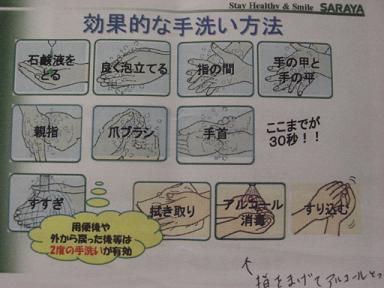 Stay Healthy & Smile SARAYA
効果的な手洗い方法
石鹸液を
とる
良く泡立てる
指の間
手の甲と
手の平
親指
爪ブラシ
手首
ここまでが
30秒！！
すすぎ
拭き取り
アルコール
消毒
すり込む
用便後や
外から戻った後等は
2度の手洗いが有効
↑
指をまげてアルコールをとっ